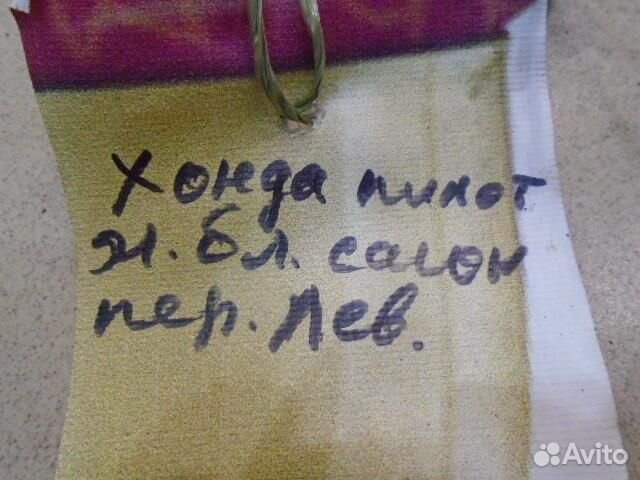 Хонда пилот
эл. бл. салон
пер. лев.
Avito